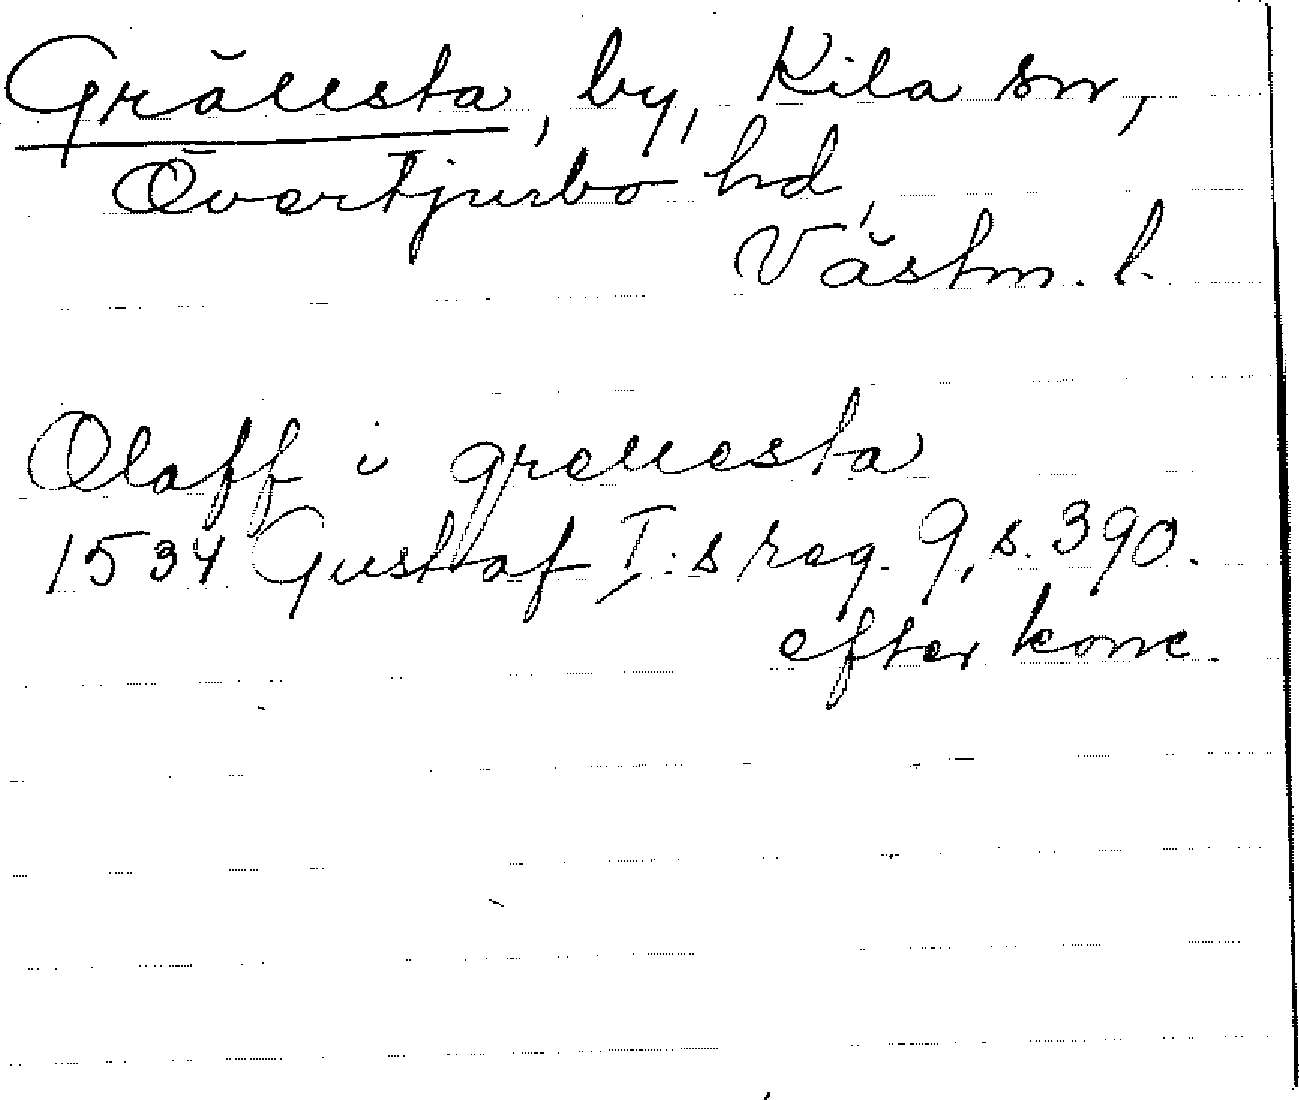 Grällesta, by, Kila sn,
Övertjurbo hd,
Västm. l.
Olaff i grellesta
1534 Gustaf I:s reg. 9, s. 390.
efter konc.